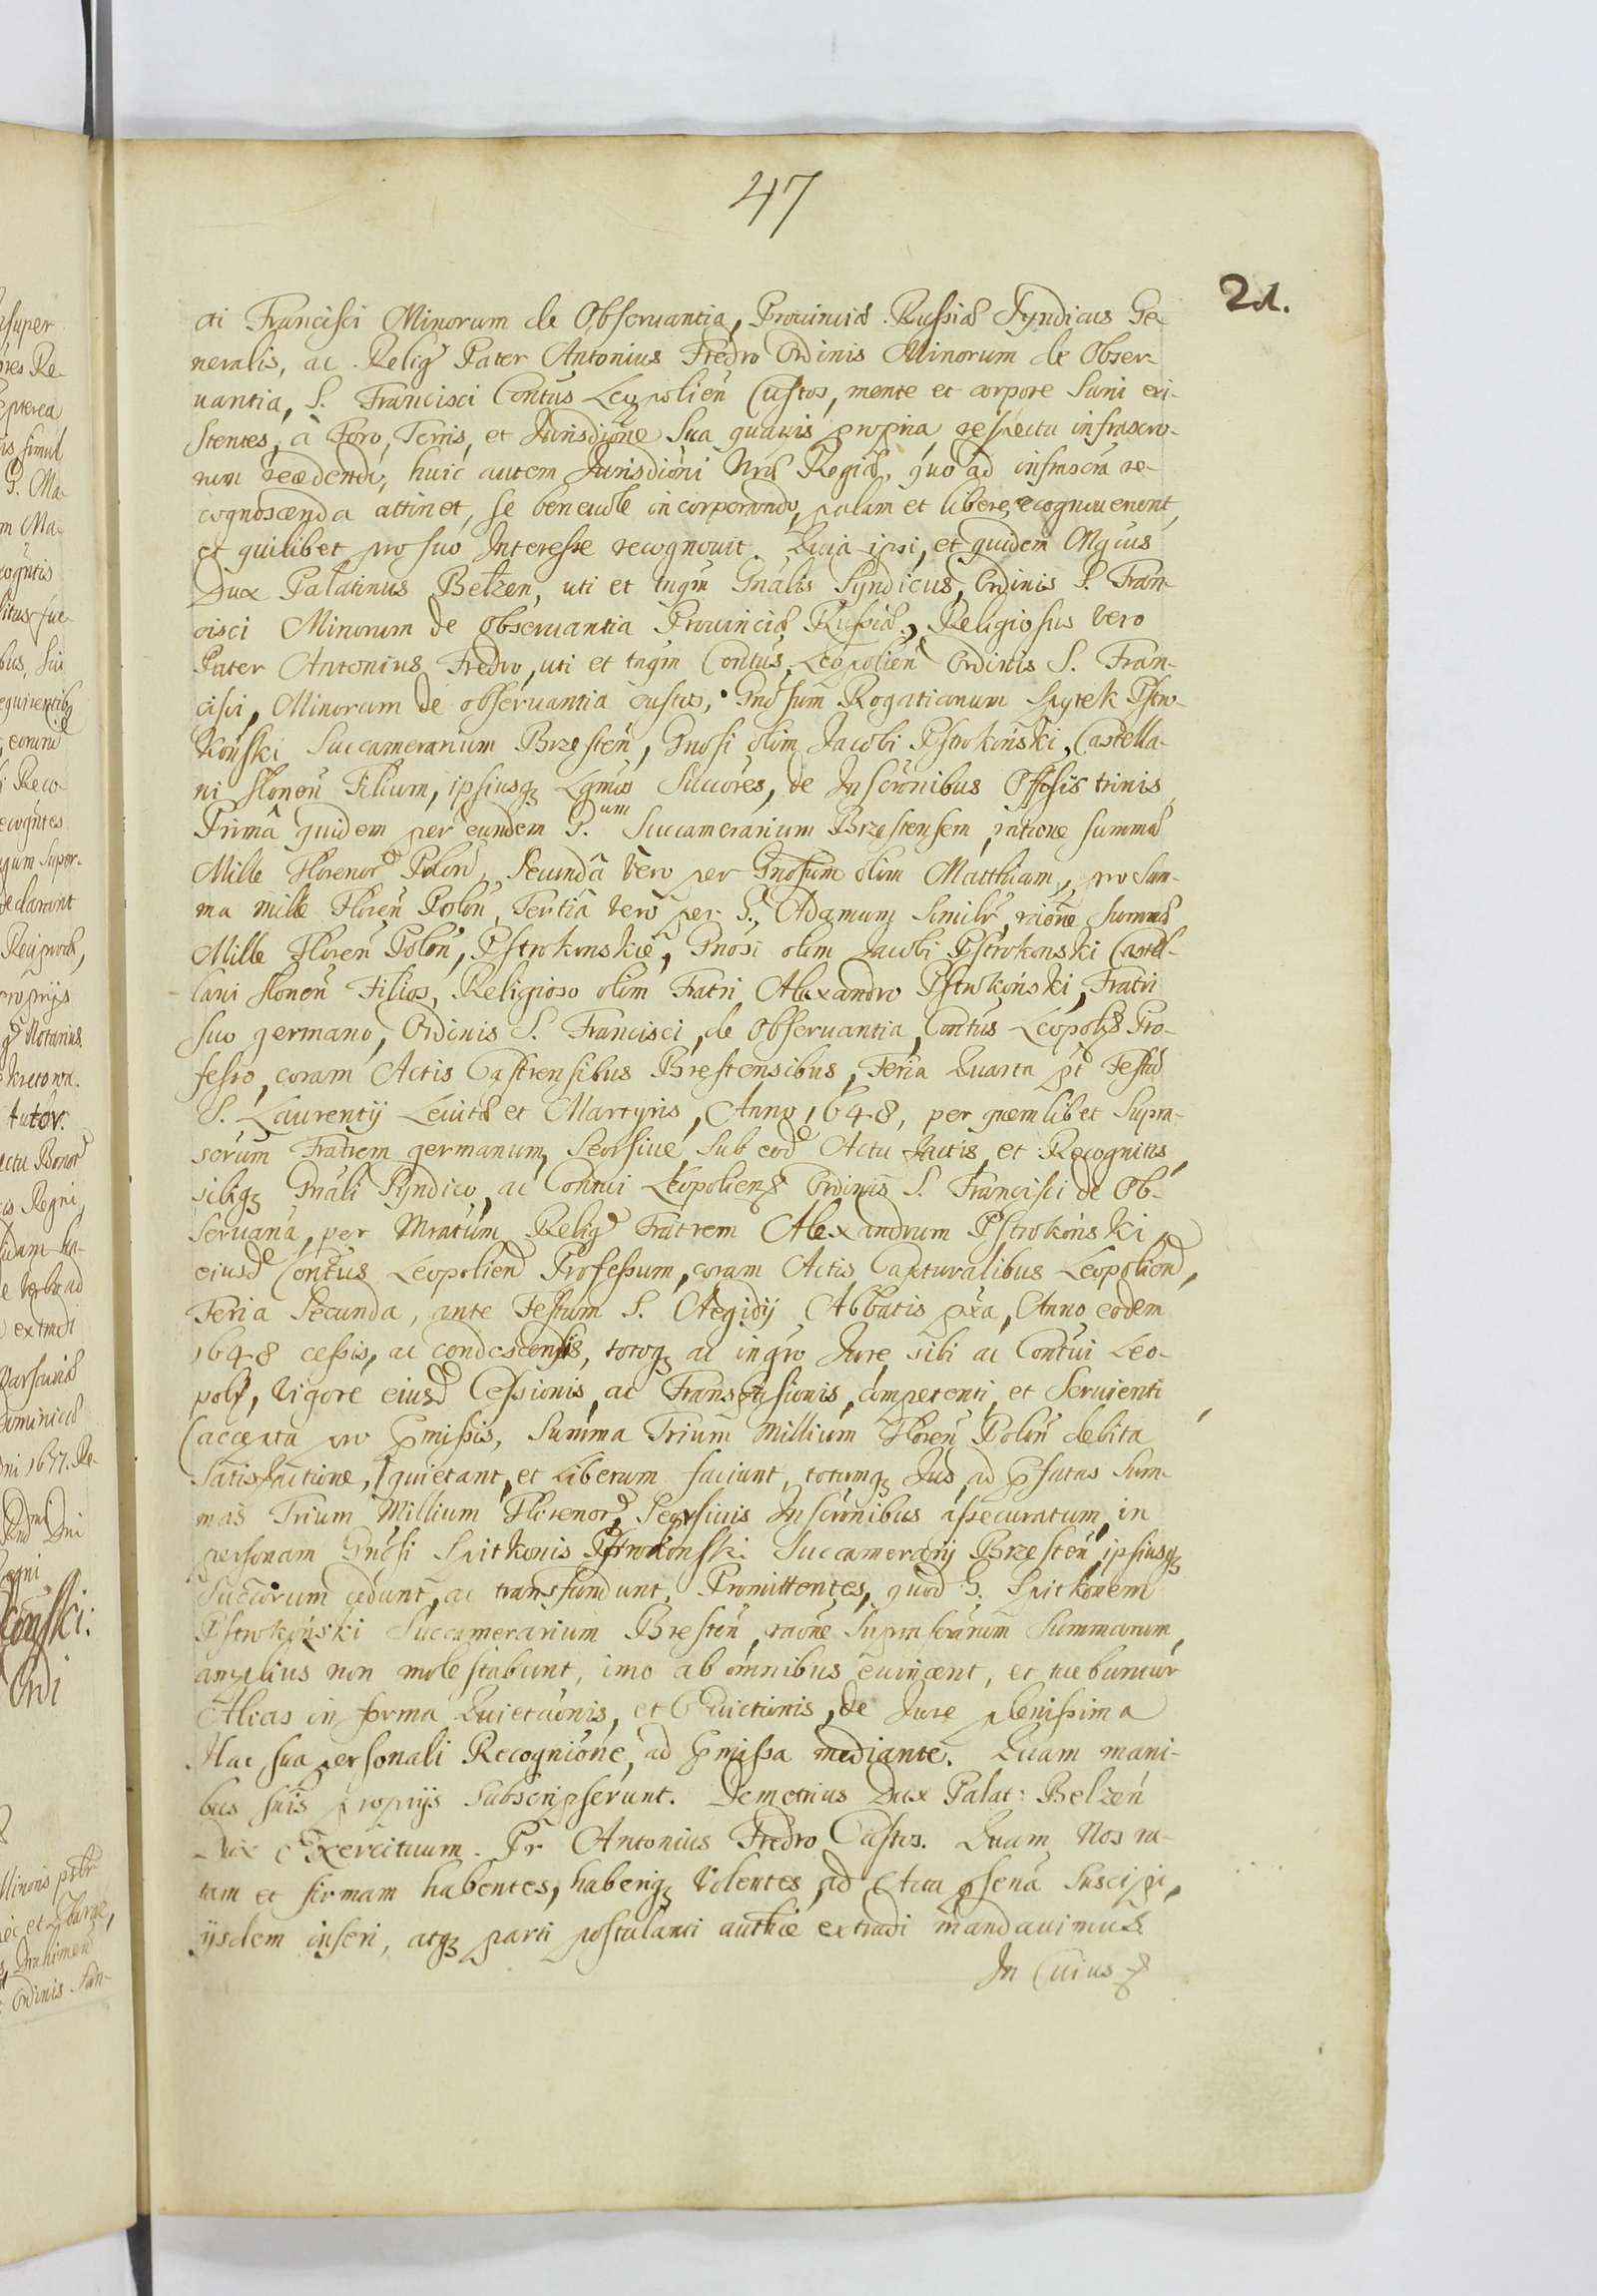 47
21.
cti Francisci Minorum de Obseruantia, Prouinciæ Russiæ Syndicus Ge-
neralis, ac Relig Pater Antonius Fredro Ordinis Minorum de Obser-
uantia, S. Francisci Contus Leopolien Custos, mente et corpore Sani exi-
stentes, à Foro, Terris, et Jurisdione Sua quauis propria respectu infrascro-
rum recedendi, huic autem Jurisdioni Nræ Regiæ, quo ad infrascra re-
cognoscenda attinet, se beneuole incorporando, palam et libere recognouerunt,
et quilibet pro suo Interesse recognouit. Quia ipsi, et quidem Mgcus
Dux Palatinus Belzen, uti et tnqm Gnalis Syndicus, Ordinis S. Fran-
cisci Minorum de Obseruantia Prouinciæ Russiæ, Religiosus vero
Pater Antonius Fredro, uti et tnqm Contus Leopolien Ordinis S. Fran-
cisci, Minorum de obseruantia custos, Gnosum Rogatianum Spytek Pstro-
koński Succamerarium Brzesten, Gnosi olim Jacobi Pstrokoński, Castella-
ni Slonen Filium, ipsiusq Lgmos Succores, de Inscronibus trinis
Primâ quidem per eundem G.um Succamerarium Brzestensem, ratione summæ
Mille Florenor Polon, Secundâ vero per Gnosum olim Matthiam, pro Sum-
ma mille Floren Polon, Tertiâ vero per G. Adamum Similr, raone summæ
Mille Floren Polon, Pstrokonskie, Gnosi olim Jacobi Pstrokonski Castel-
lani Slonen Filios, Religioso olim Fratri Alexandro Pstrokoński, Fratri
suo germano, Ordinis S. Francisci, de Obseruantia, Contus Leopol Pro-
fesso, coram Actis Castrensibus Brestensibus, Feria Quarta pt Festū
S. Laurentij Leuitæ et Martyris, Anno 1648, per quemlibet Supra-
scrum Fratrem germanum, Seorsiue sub eod Actu factis, et Recognitis,
sibiq Gnali Syndico, ac Contui Leopolien Ordinis S. Francisci de Ob-
seruana, per Mratum Relig Fratrem Alexandrum Pstrokoński
eiusd Contus Leopolien Professum, coram Actis Capturalibus Leopolien,
Feria Secunda, ante Festum S. Aegidij Abbatis pxa, Anno eodem
1648 cessis, ac condescensis, totoq ac ingro Jure sibi ac Contui Leo-
pol, vigore eiusd Cessionis, ac Transfusionis, competenti, et Seruienti
(accepta pro præmissis, Summa Trium Millium Floren Polon debita
Satisfactione,) quietant, et Liberum faciunt, totumq Jus, ad præfatas Sum-
mas Trium Millium Florenor, Seorsiuis Inscronibus assecuratum, in
personam Gnosi Spitkonis Pstrokonski Succamerarij Brzesten, ipsiusq
Succorum cedunt, ac transfundunt. Promittentes, quod G. Spitkonem
Pstrokoński Succamerarium Bresten, raone Suprascrarum Summarum,
amplius non molestabunt, imo ab omnibus euincent, et tuebuntur
Alias in forma Quietaonis, et Euictionis, de Jure plenissima
Hac sua personali Recognione, ad præmissa mediante. Quam mani-
bus suis proprijs Subscripserunt. Demetrius Dux Palat: Belzen
Dux Exercituum. Pr Antonius Fredro Custos. Quam Nos ra-
tam et firmam habentes, haberiq Volentes, ad Acta psena Suscipi,
ijsdem inseri, atq parti postulanti authce extradi mandauimus.
In Cuius